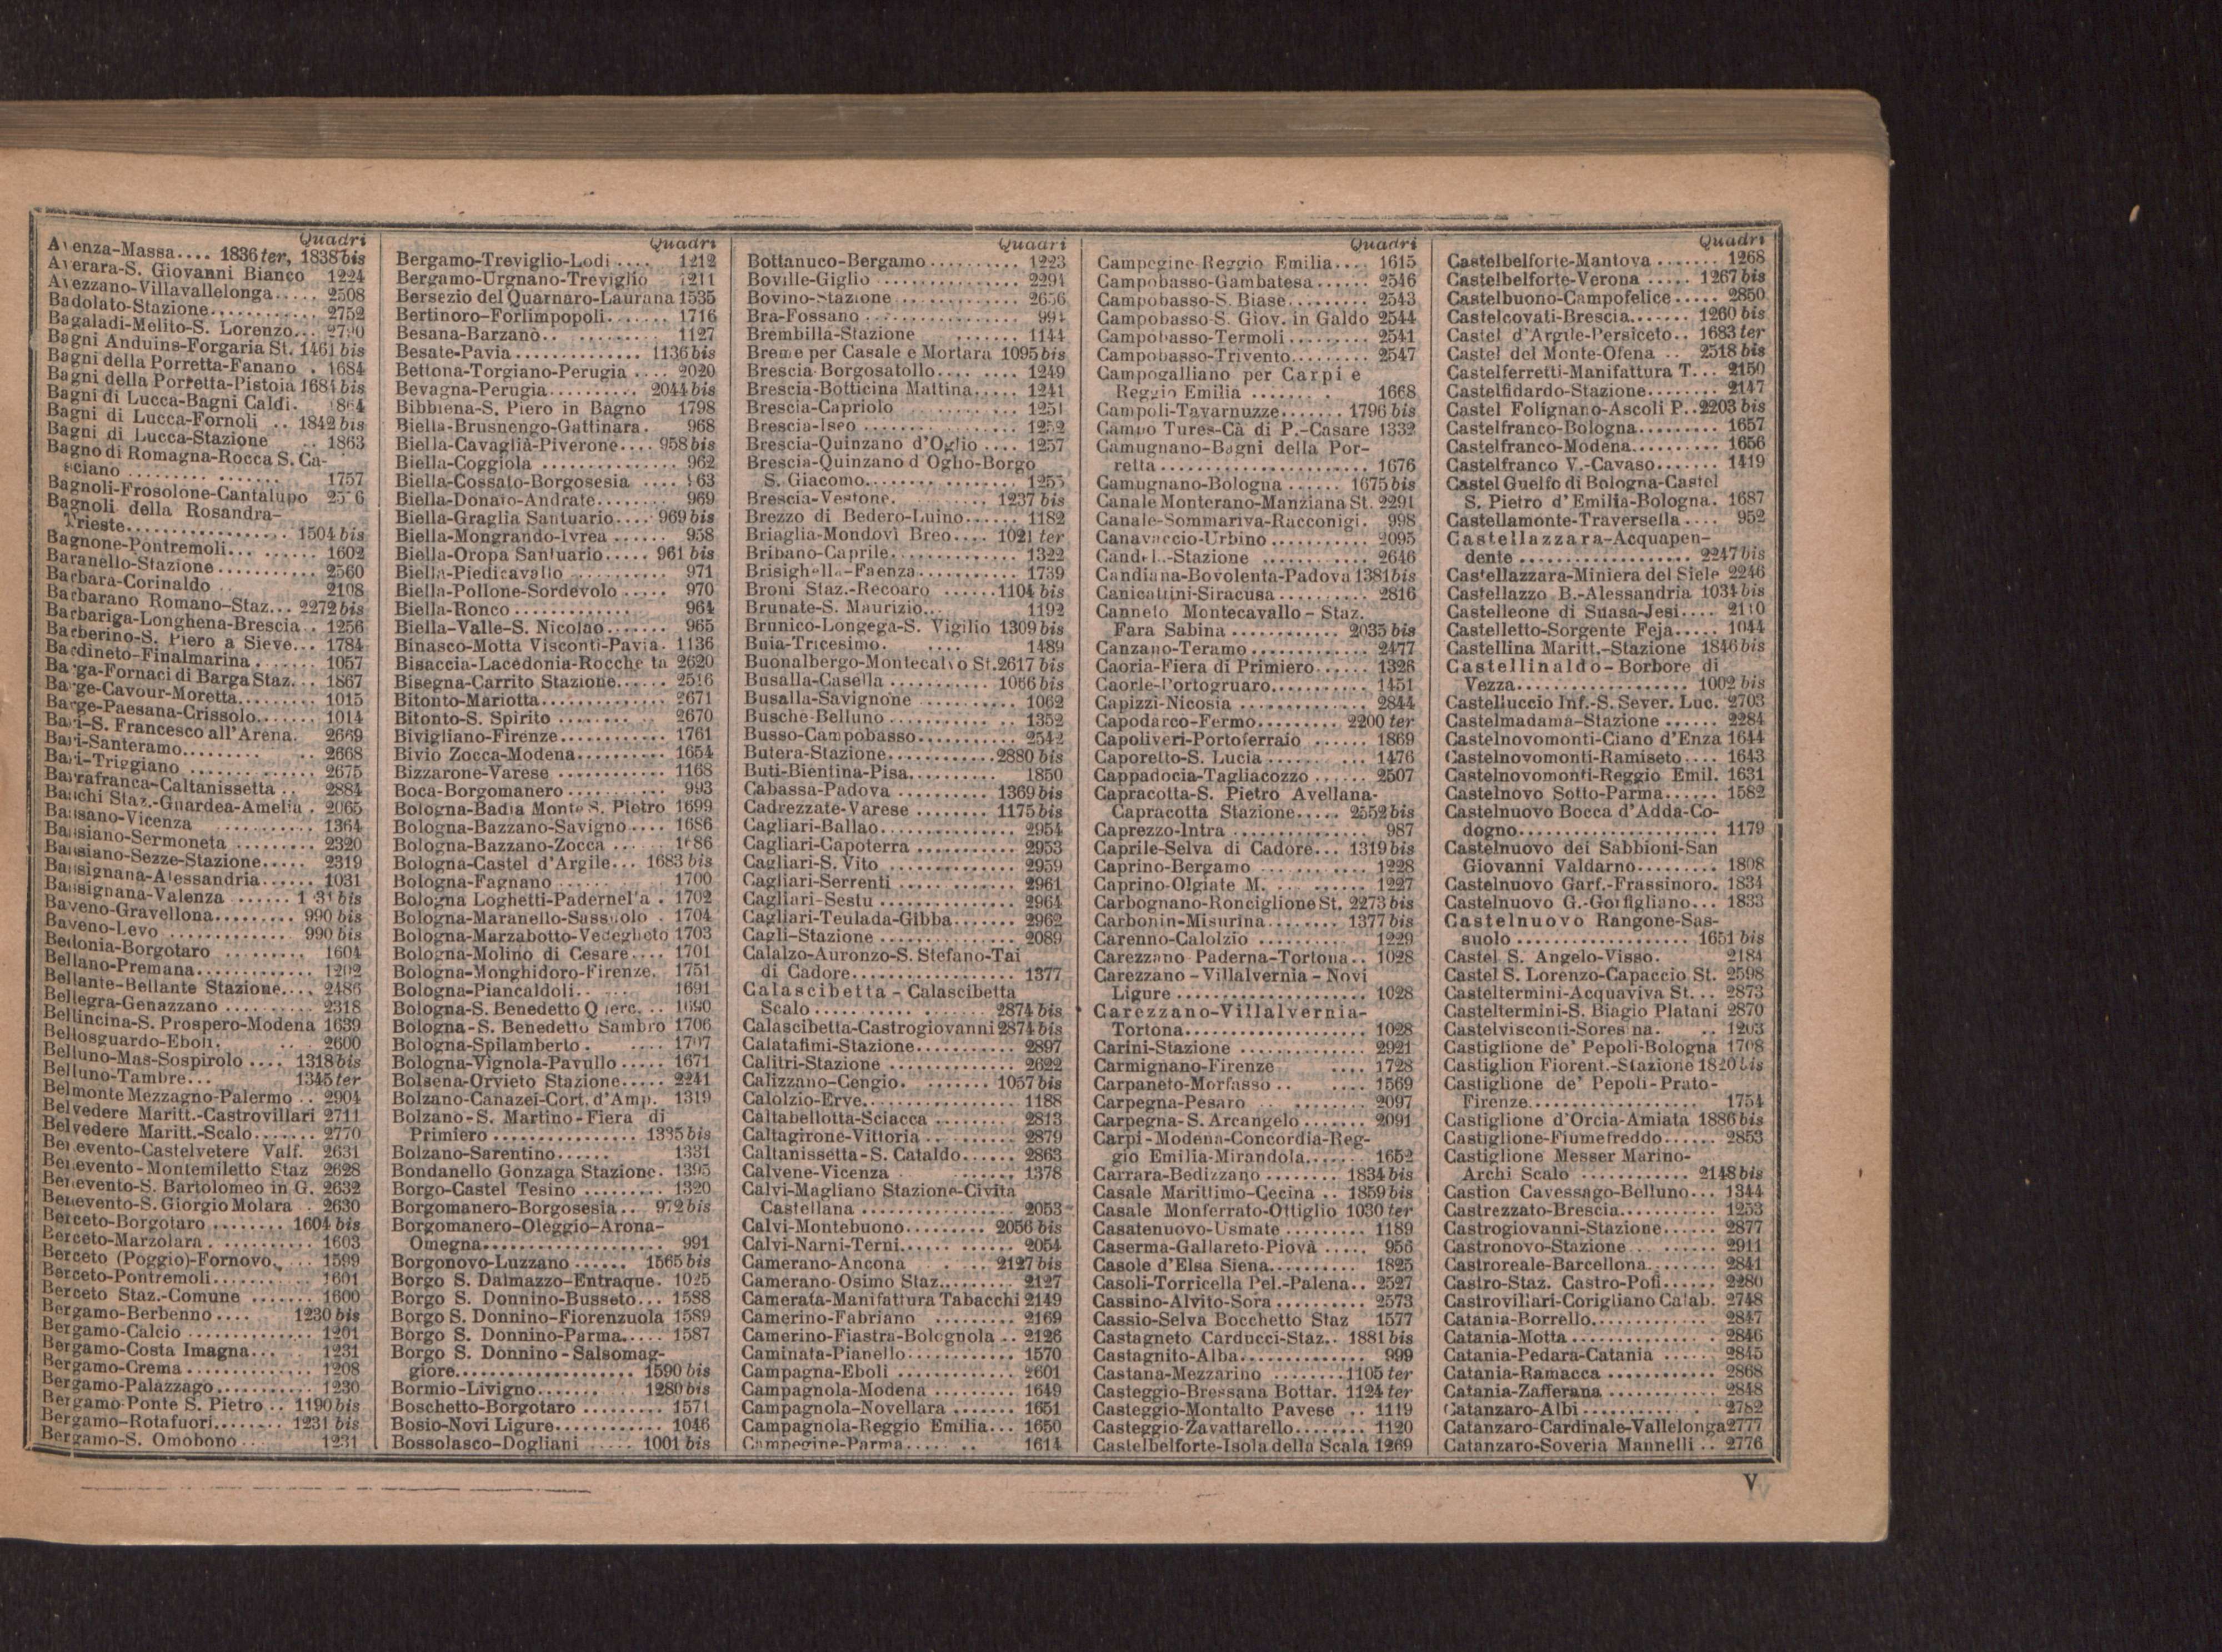 Quadri
Avenza-Massa.... 1836 ter, 1838 bis
Averara-S. Giovanni Bianco 1224
Avezzano-Villavallelonga..... 2508
Badolato-Stazione............ 2752
Bagaladi-Melito-S. Lorenzo...
Bagni Anduins-Forgaria St. 1461 bis
Bagni della Porretta-Fanano . 1684
Bagni della Porretta-Pistoia 1684 bis
Bagni di Lucca-Bagni Caldi. 1864
Bagni di Lucca-Fornoli .. 1842 bis
Bagni di Lucca-Stazione .. 1863
Bagno di Romagna-Rocca S. Ca-
sciano ................ 1757
Bagnoli-Frosolone-Cantalupo
Bagnoli della Rosandra-
Trieste.............. 1504 bis
Bagnone-Pontremoli.......... 1602
Baranello-Stazione........... 2560
Barbara-Corinaldo .. 2108
Barbarano Romano-Staz... 2272 bis
Barbariga-Longhena-Brescia.. 1256
Barberino-S. Piero a Sieve... 1784
Bardineto-Finalmarina....... 1057
Barga-Fornaci di Barga Staz... 1867
Barge-Cavour-Moretta......... 1015
Barge-Paesana-Crissolo....... 1014
Bari-S. Francesco all'Arena. 2669
Bari-Santeramo........... 2668
Bari-Triggiano .............. 2675
Barrafranca-Caltanissetta .. 2884
Baschi Staz.-Guardea-Amelia . 2065
Bassano-Vicenza .......... 1364
Bassiano-Sermoneta ......... 2320
Bassiano-Sezze-Stazione..... 2319
Bassignana-Alessandria...... 1031
Bassignana-Valenza ...... 1031 bis
Baveno-Gravellona......... 990 bis
Baveno-Levo ............. 990 bis
Bedonia-Borgotaro ......... 1604
Bellano-Premana............. 1202
Bellante-Bellante Stazione.... 2486
Bellegra-Genazzano ......... 2318
Bellincina-S. Prospero-Modena 1639
Bellosguardo-Eboli. .. 2600
Belluno-Mas-Sospirolo .... 1318 bis
Belluno-Tambre... 1345 ter
Belmonte Mezzagno-Palermo .. 2904
Belvedere Maritt.-Castrovillari 2711
Belvedere Maritt.-Scalo....... 2770
Benevento-Castelvetere Valf. 2631
Benevento-Montemiletto Staz 2628
Benevento-S. Bartolomeo in G. 2632
Benevento-S. Giorgio Molara . 2630
Berceto-Borgotaro ........ 1604 bis
Berceto-Marzolara........... 1603
Berceto (Poggio)-Fornovo.... 1599
Berceto-Pontremoli.......... 1601
Berceto Staz.-Comune ....... 1600
Bergamo-Berbenno .... 1230 bis
Bergamo-Calcio ............. 1201
Bergamo-Costa Imagna... . 1231
Bergamo-Crema ............. 1208
Bergamo-Palazzago.......... 1230
Bergamo-Ponte S. Pietro .. 1190 bis
Bergamo-Rotafuori........ 1231 bis
Bergamo-S. Omobono ... 1231
Quadri
Bergamo-Treviglio-Lodi .... 1212
Bergamo-Urgnano-Treviglio 1211
Bersezio del Quarnaro-Laurana 1535
Bertinoro-Forlimpopoli....... 1716
Besana-Barzanò.. .......... 1127
Besate-Pavia.............. 1136 bis
Bettona-Torgiano-Perugia .... 2020
Bevagna-Perugia.......... 2044 bis
Bibbiena-S. Piero in Bagno 1798
Biella-Brusnengo-Gattinara. 968
Biella-Cavaglià-Piverone.... 958 bis
Biella-Coggiola .............. 962
Biella-Cossato-Borgosesia .... 963
Biella-Donato-Andrate........ 969
Biella-Graglia Santuario.... 969 bis
Biella-Mongrando-Ivrea ...... 958
Biella-Oropa Santuario ..... 961 bis
Biella-Piedicavallo .......... 971
Biella-Pollone-Sordevolo ..... 970
Biella-Ronco ............. 964
Biella-Valle-S. Nicolao....... 965
Binasco-Motta Visconti-Pavia. 1136
Bisaccia-Lacedonia-Rocchetta 2620
Bisegna-Carrito Stazione...... 2516
Bitonto-Mariotta............. 2671
Bitonto-S. Spirito ........ .. 2670
Bivigliano-Firenze............ 1761
Bivio Zocca-Modena.......... 1654
Bizzarone-Varese ............ 1168
Boca-Borgomanero .......... 993
Bologna-Badia Monte S. Pietro 1699
Bologna-Bazzano-Savigno .... 1686
Bologna-Bazzano-Zocca ..... 1686
Bologna-Castel d'Argile... 1683 bis
Bologna-Fagnano ...... 1700
Bologna Loghetti-Padernella . 1702
Bologna-Maranello-Sassuolo . 1704
Bologna-Marzabotto-Vedegheto 1703
Bologna-Molino di Cesare.... 1701
Bologna-Monghidoro-Firenze. 1751
Bologna-Piancaldoli.. ... 1691
Bologna-S. Benedetto Querc. .. 1690
Bologna-S. Benedetto Sambro 1706
Bologna-Spilamberto . .... 1707
Bologna-Vignola-Pavullo ..... 1671
Bolsena-Orvieto Stazione..... 2241
Bolzano-Canazei-Cort. d'Amp. 1319
Bolzano-S. Martino-Fiera di
Primiero ................ 1335 bis
Bolzano-Sarentino...... 1331
Bondanello Gonzaga Stazione. 1395
Borgo-Castel Tesino ......... 1320
Borgomanero-Borgosesia .. 972 bis
Borgomanero-Oleggio-Arona-
Omegna.................... 991
Borgonovo-Luzzano ...... 1565 bis
Borgo S. Dalmazzo-Entraque. 1025
Borgo S. Donnino-Busseto... 1588
Borgo S. Donnino-Fiorenzuola 1589
Borgo S. Donnino-Parma..... 1587
Borgo S. Donnino-Salsomag-
giore.................... 1590 bis
Bormio-Livigno....... 1280 bis
Boschetto-Borgotaro ......... 1571
Bosio-Novi Ligure............ 1046
Bossolasco-Dogliani ..... 1001 bis
Quadri
Bottanuco-Bergamo.......... 1223
Boville-Giglio ............... 2291
Bovino-Stazione ............. 2656
Bra-Fossano .................
Brembilla-Stazione ....... 1144
Breme per Casale e Mortara 1095 bis
Brescia-Borgosatollo.... .... 1249
Brescia-Botticina Mattina..... 1241
Brescia-Capriolo ........... 1251
Brescia-Iseo ............... 1252
Brescia-Quinzano d'Oglio .... 1257
Brescia-Quinzano d'Oglio-Borgo
S. Giacomo.................. 1255
Brescia-Vestone. ......... 1237 bis
Brezzo di Bedero-Luino...... 1182
Briaglia-Mondovì Breo.... 1021 ter
Bribano-Caprile.............. 1322
Brisighella-Faenza........... 1739
Broni Staz.-Recoaro ...... 1104 bis
Brunate-S. Maurizio... 1192
Brunico-Longega-S. Vigilio 1309 bis
Buia-Tricesimo. .... 1489
Buonalbergo-Montecalvo St. 2617 bis
Busalla-Casella ........... 1066 bis
Busalla-Savignone .......... 1062
Busche-Belluno ............. 1352
Busso-Campobasso........... 2542
Butera-Stazione........... 2880 bis
Buti-Bientina-Pisa.......... 1850
Cabassa-Padova .......... 1369 bis
Cadrezzate-Varese ........ 1175 bis
Cagliari-Ballao............... 2954
Cagliari-Capoterra ........... 2953
Cagliari-S. Vito ............. 2959
Cagliari-Serrenti ............ 2961
Cagliari-Sestu ............... 2964
Cagliari-Teulada-Gibba....... 2962
Cagli-Stazione ............... 2089
Calalzo-Auronzo-S. Stefano-Tai
di Cadore.................. 1377
Calascibetta - Calascibetta
Scalo .................. 2874 bis
Calascibetta-Castrogiovanni 2874 bis
Calatafimi-Stazione........... 2897
Calitri-Stazione .............. 2622
Calizzano-Cengio. ....... 1057 bis
Calolzio-Erve................. 1188
Caltabellotta-Sciacca ......... 2813
Caltagirone-Vittoria .......... 2879
Caltanissetta-S. Cataldo...... 2863
Calvene-Vicenza ....... 1378
Calvi-Magliano Stazione-Civita
Castellana ................. 2053
Calvi-Montebuono......... 2056 bis
Calvi-Narni-Terni............ 2054
Camerano-Ancona .... 2127 bis
Camerano-Osimo Staz......... 2127
Camerata-Manifattura Tabacchi 2149
Camerino-Fabriano ......... 2169
Camerino-Fiastra-Bolognola .. 2126
Caminata-Pianello............ 1570
Campagna-Eboli ............. 2601
Campagnola-Modena ......... 1649
Campagnola-Novellara ....... 1651
Campagnola-Reggio Emilia... 1650
Campegine-Parma..... .. 1614
Quadri
Campegine-Reggio Emilia.... 1615
Campobasso-Gambatesa...... 2546
Campobasso-S. Biase......... 2543
Campobasso-S. Giov. in Galdo 2544
Campobasso-Termoli......... 2541
Campobasso-Trivento......... 2547
Campogalliano per Carpi e
Reggio Emilia ....... . 1668
Campoli-Tavarnuzze....... 1796 bis
Campo Tures-Cà di P.-Casare 1332
Camugnano-Bagni della Por-
retta...................... 1676
Camugnano-Bologna ...... 1675 bis
Canale Monterano-Manziana St. 2291
Canale-Sommariva-Racconigi. 998
Canavaccio-Urbino ........... 2095
Candela-Stazione ............ 2646
Candiana-Bovolenta-Padova 1381 bis
Canicattini-Siracusa........... 2816
Canneto Montecavallo - Staz.
Fara Sabina ............ 2035 bis
Canzano-Teramo............. 2477
Caoria-Fiera di Primiero...... 1326
Caorle-Portogruaro........... 1451
Capizzi-Nicosia .............. 2844
Capodarco-Fermo......... 2200 ter
Capoliveri-Portoferraio ...... 1869
Caporetto-S. Lucia ...... ... 1476
Cappadocia-Tagliacozzo ...... 2507
Capracotta-S. Pietro Avellana-
Capracotta Stazione..... 2552 bis
Caprezzo-Intra .............. 987
Caprile-Selva di Cadore... 1319 bis
Caprino-Bergamo ........... 1228
Caprino-Olgiate M. .......... 1227
Carbognano-Ronciglione St. 2273 bis
Carbonin-Misurina......... 1377 bis
Carenno-Calolzio .......... 1229
Carezzano Paderna-Tortona.. 1028
Carezzano - Villalvernia - Novi
Ligure ................... 1028
Carezzano-Villalvernia-
Tortona................... 1028
Carini-Stazione .............. 2921
Carmignano-Firenze .... 1728
Carpaneto-Morfasso .. .... 1569
Carpegna-Pesaro .......... 2097
Carpegna-S. Arcangelo....... 2091
Carpi-Modena-Concordia-Reg-
gio Emilia-Mirandola....... 1652
Carrara-Bedizzano ........ 1834 bis
Casale Marittimo-Cecina .. 1859 bis
Casale Monferrato-Ottiglio 1030 ter
Casatenuovo-Usmate ......... 1189
Caserma-Gallareto-Piovà ..... 956
Casole d'Elsa Siena........... 1825
Casoli-Torricella Pel.-Palena.. 2527
Cassino-Alvito-Sora .......... 2573
Cassio-Selva Bocchetto Staz 1577
Castagneto Carducci-Staz.. 1881 bis
Castagnito-Alba.............. 999
Castana-Mezzarino ........ 1105 ter
Casteggio-Bressana Bottar. 1124 ter
Casteggio-Montalto Pavese .. 1119
Casteggio-Zavattarello........ 1120
Castelbelforte-Isola della Scala 1269
Quadri
Castelbelforte-Mantova ....... 1268
Castelbelforte-Verona ..... 1267 bis
Castelbuono-Campofelice ..... 2850
Castelcovati-Brescia....... 1260 bis
Castel d'Argile-Persiceto.. 1683 ter
Castel del Monte-Ofena .. 2518 bis
Castelferretti-Manifattura T... 2150
Castelfidardo-Stazione........ 2147
Castel Folignano-Ascoli P.. 2203 bis
Castelfranco-Bologna......... 1657
Castelfranco-Modena.......... 1656
Castelfranco V.-Cavaso....... 1419
Castel Guelfo di Bologna-Castel
S. Pietro d'Emilia-Bologna. 1687
Castellamonte-Traversella .... 952
Castellazzara-Acquapen-
dente ................. 2247 bis
Castellazzara-Miniera del Siele 2246
Castellazzo B.-Alessandria 1034 bis
Castelleone di Suasa-Jesi.... 2110
Castelletto-Sorgente Feja..... 1044
Castellina Maritt.-Stazione 1846 bis
Castellinaldo-Borbore di
Vezza.................. 1002 bis
Castelluccio Inf.-S. Sever. Luc. 2703
Castelmadama-Stazione ...... 2284
Castelnovomonti-Ciano d'Enza 1644
Castelnovomonti-Ramiseto.... 1643
Castelnovomonti-Reggio Emil. 1631
Castelnovo Sotto-Parma...... 1582
Castelnuovo Bocca d'Adda-Co-
dogno..................... 1179
Castelnuovo dei Sabbioni-San
Giovanni Valdarno......... 1808
Castelnuovo Garf.-Frassinoro. 1834
Castelnuovo G.-Gorfigliano... 1833
Castelnuovo Rangone-Sas-
suolo .................. 1651 bis
Castel S. Angelo-Visso. 2184
Castel S. Lorenzo-Capaccio St. 2598
Casteltermini-Acquaviva St... 2873
Casteltermini-S. Biagio Platani 2870
Castelvisconti-Soresina. .. 1203
Castiglione de' Pepoli-Bologna 1708
Castiglion Fiorent.-Stazione 1820 bis
Castiglione de' Pepoli-Prato-
Firenze.................... 1754
Castiglione d'Orcia-Amiata 1886 bis
Castiglione-Fiumefreddo...... 2853
Castiglione Messer Marino-
Archi Scalo ............ 2148 bis
Castion Cavessago-Belluno... 1344
Castrezzato-Brescia........... 1253
Castrogiovanni-Stazione....... 2877
Castronovo-Stazione .......... 2911
Castroreale-Barcellona........ 2841
Castro-Staz. Castro-Pofi...... 2280
Castrovillari-Corigliano Calab. 2748
Catania-Borrello.............. 2847
Catania-Motta ............... 2846
Catania-Pedara-Catania ...... 2845
Catania-Ramacca ............ 2868
Catania-Zafferana ............ 2848
Catanzaro-Albi............ 2782
Catanzaro-Cardinale-Vallelonga 2777
Catanzaro-Soveria Mannelli .. 2776
V